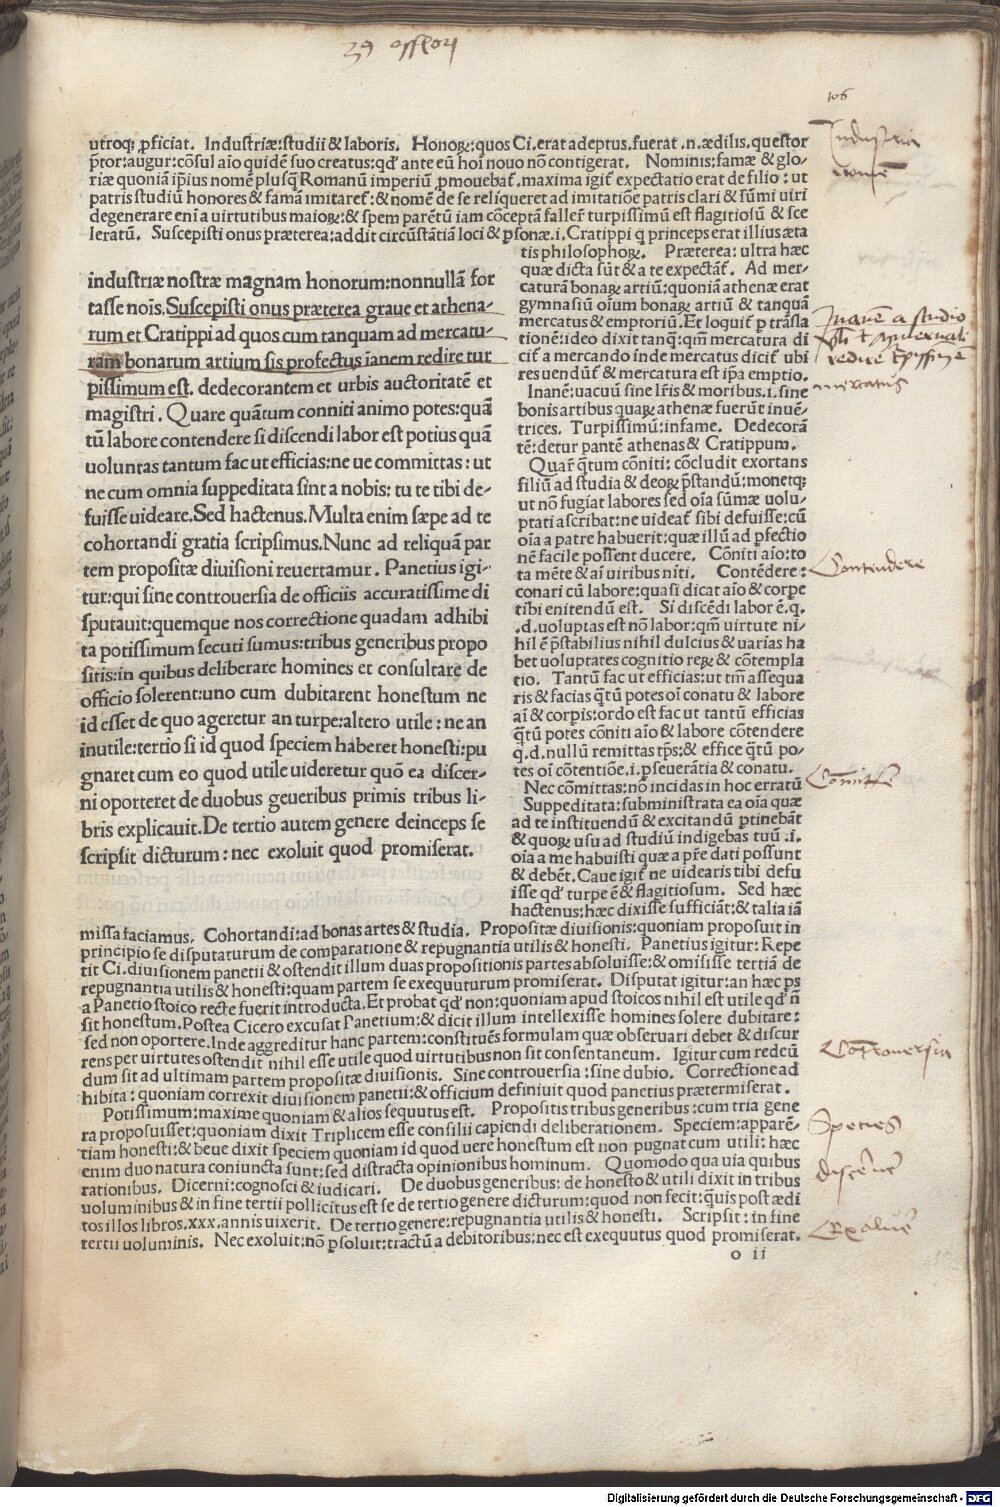 106
utroqꝫ ꝓficiat. Industriæ:studii & laboris. Honoꝝ:quos Ci.erat adeptus.fuerat .n.ædilis.questor
p̄tor:augur:cōsul aīo quidē suo creatus:qđ ante eū hoī nouo nō contigerat. Nominis:famæ & glo-
riæ quoniā ip̄ius nomē plusq̄ Romanū imperiū ꝓmouebat̄.maxima igit̄ expectatio erat de filio: ut
patris studiū honores & famā imitaret̄:& nomē de se relinqueret ad imitatiōe patris clari & sūmi uiri
degenerare enī a uirtutibus maioꝝ:& spem parētū iam cōceptā faller̄ turpissimū est flagitiosū & sce
leratū. Suscepisti onus præterea:addit circūstātiā loci & ꝑsonæ.i.Cratippi q̄ princeps erat illius æta
tis philosophoꝝ. Præterea: ultra hæc
quæ dicta sūt & a te expectāt̄. Ad mer-
caturā bonaꝝ artiū:quoniā athenæ erat
gymnasiū oīum bonaꝝ artiū & tanquā
mercatus & emptoriū.Et loquit̄ ꝑ trāsla
tionē:ideo dixit tanq̄:qm̄ mercatura di
cit̄ a mercando inde mercatus dicit̄ ubi
res uendūt̄ & mercatura est ip̄a emptio.
Inanē:uacuū sine lr̄is & moribus.i.sine
bonis artibus quaꝝ athenæ fuerūt inuē-
trices. Turpissimū:infame. Dedecorā
tē:detur pantē athenas & Cratippum.
Quar̄ q̄tum cōniti: cōcludit exortans
filiū ad studia & deoꝝ p̄standū:monetqꝫ
ut nō fugiat labores sed oīa sūmæ uolu-
ptati ascribat:ne uideat̄ sibi defuisse:cū
oīa a patre habuerit:quæ illū ad ꝑfectio
nē facile possent ducere. Cōniti aīo:to
ta mēte & aī uiribus nīti. Contēdere:
conari cū labore:quasi dicat aīo & corpe
tibi enitendū est. Si discēdi labor ē.q.
.d.uoluptas est nō labor:qm̄ uirtute ni-
hil ē p̄stabilius nihil dulcius & uarias ha
bet uoluptates cognitio reꝝ & cōtempla
tio. Tantū fac ut efficias:ut tm̄ assequa
ris & facias q̄tū potes oī conatu & labore
aī & corpis:ordo est fac ut tantū efficias
q̄tū potes cōniti aīo & labore cōtendere
q.d.nullū remittas tp̄s:& effice q̄tū po-
tes oī cōtentiōe.i.ꝑseuerātia & conatu.
Nec cōmittas:nō incidas in hoc erratū
Suppeditata:subministrata ea oīa quæ
ad te instituendū & excitandū ꝑtinebāt
& quoꝝ usu ad studiū indigebas tuū .i.
oīa a me habuisti quæ a pr̄e dati possunt
& debēt.Caue igit̄ ne uidearis tibi defu
isse qđ turpe ē & flagitiosum. Sed hæc
hactenus:hæc dixisse sufficiāt:& talia iā
industriæ nostræ magnam honorum:nonnullā for
tasse nois.Suscepisti onus præterea graue et athena-
rum et Cratippi ad quos cum tanquam ad mercatu-
ram bonarum artium sis profectus ianem redire tur
pissimum est. dedecorantem et urbis auctoritatē et
magistri. Quare quātum conniti animo potes:quā
tū labore contendere si discendi labor est potius quā
uoluntas tantum fac ut efficias:ne ue committas: ut
ne cum omnia suppeditata sint a nobis: tu te tibi de-
fuisse uideare.Sed hactenus.Multa enim sæpe ad te
cohortandi gratia scripsimus.Nunc ad reliquā par
tem propositæ diuisioni reuertamur. Panetius igi-
tur:qui sine controuersia de officiis accuratissime di
sputauit:quemque nos correctione quadam adhibi
ta potissimum secuti sumus:tribus generibus propo
sitis:in quibus deliberare homines et consultare de
officio solerent:uno cum dubitarent honestum ne
id esset de quo ageretur an turpe:altero utile: ne an
inutile:tertio si id quod speciem haberet honesti:pu
gnaret cum eo quod utile uideretur quō ea discer-
ni oporteret de duobus geueribus primis tribus li-
bris explicauit.De tertio autem genere deinceps se
scripsit dicturum: nec exoluit quod promiserat.
missa faciamus. Cohortandi:ad bonas artes & studia. Propositæ diuisionis:quoniam proposuit in
principio se disputaturum de comparatione & repugnantia utilis & honesti. Panetius igitur: Repe
tit Ci.diuisionem panetii & ostendit illum duas propositionis partes absoluisse:& omisisse tertiā de
repugnantia utilis & honesti:quam partem se exequuturum promiserat. Disputat igitur:an hæc ps
a Panetio stoico recte fuerit introducta.Et probat qđ non:quoniam apud stoicos nihil est utile qđ n̄
sit honestum.Postea Cicero excusat Panetium:& dicit illum intellexisse homines solere dubitare:
sed non oportere.Inde aggreditur hanc partem:constituēs formulam quæ obseruari debet & discur
rens per uirtutes ostendit nihil esse utile quod uirtutibus non sit consentaneum. Igitur cum redeū
dum sit ad ultimam partem propositæ diuisionis. Sine controuersia:sine dubio. Correctione ad
hibita: quoniam correxit diuisionem panetii:& officium definiuit quod panetius prætermiserat.
Potissimum:maxime quoniam & alios sequutus est. Propositis tribus generibus:cum tria gene
ra proposuisset:quoniam dixit Triplicem esse consilii capiendi deliberationem. Speciem:apparē-
tiam honesti:& beue dixit speciem quoniam id quod uere honestum est non pugnat cum utili: hæc
enim duo natura coniuncta sunt:sed distracta opinionibus hominum. Quomodo qua uia quibus
rationibus. Dicerni:cognosci & iudicari. De duobus generibus: de honesto & utili dixit in tribus
uoluminibus & in fine tertii pollicitus est se de tertio genere dicturum:quod non fecit:quis post ædi
tos illos libros.xxx.annis uixerit. De tertio genere:repugnantia utilis & honesti. Scripsit: in fine
tertii uoluminis. Nec exoluit:nō ꝑsoluit:tractū a debitoribus:nec est exequutus quod promiserat.
o ii
Industria
nomē
Inanē a studio
redire
mercatus
Contendere
Cōmitte
Cōtrouersia
Species
discernē
Exoluē
Digitalisierung gefördert durch die Deutsche Forschungsgemeinschaft - DFG